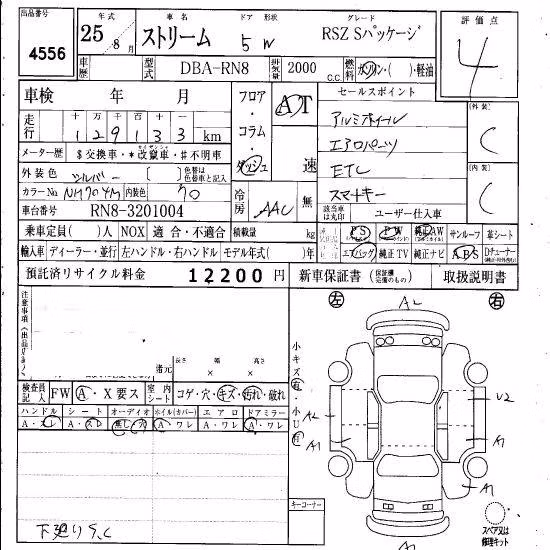 出品番号 4556
年式 25年 8月
車名 ストリーム
ドア 形状 5 W
グレード RSZ Sパッケージ
評価点 4
車歴
型式 DBA-RN8
排気量 2000 C.C.
燃料 ガソリン・( )・軽油
車検 年 月
フロア・コラム・ダッシュ
AT 速
セールスポイント
アルミホイール
エアロパーツ
ETC
スマートキー
外装 C
内装 C
走行 十万千百十一
1 2 9 1 3 3 km
メーター歴 $交換車・*改竄車・#不明車
外装色 シルバー 色替は色替車と記入
カラーNo NH704M 内装色 70
冷房 AAC 無
該当車は丸印 ユーザー仕入車
車台番号 RN8-3201004
乗車定員( )人 NOX 適合・不適合 積載量 kg
PS PW 純正AW サンルーフ 革シート
輸入車 ディーラー・並行 左ハンドル・右ハンドル モデル年式( )年
エアバッグ 純正TV 純正ナビ ABS Dチューナー
預託済リサイクル料金 12200円
新車保証書 取扱説明書
注意事項
諸元 長さ × 幅 × 高さ
左 A2 右
小キズ有・小U有
検査員記入 FW A・X要ス 室内シート コゲ・穴・キズ・汚れ・破れ
ハンドル シート オーディオ ホイル(カバー) エアロ ドアミラー
A・スレ A・スレ 無し・穴 A・ワレ A・ワレ A・ワレ
A2 U2
A1 A1
A1
A2
キーコーナー
下廻りS、C
スペア又は修理キット